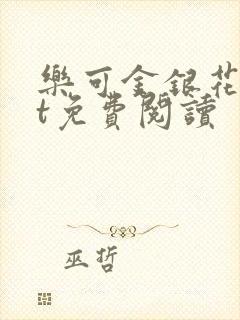 樂可金銀花
t免費閱讀
巫哲